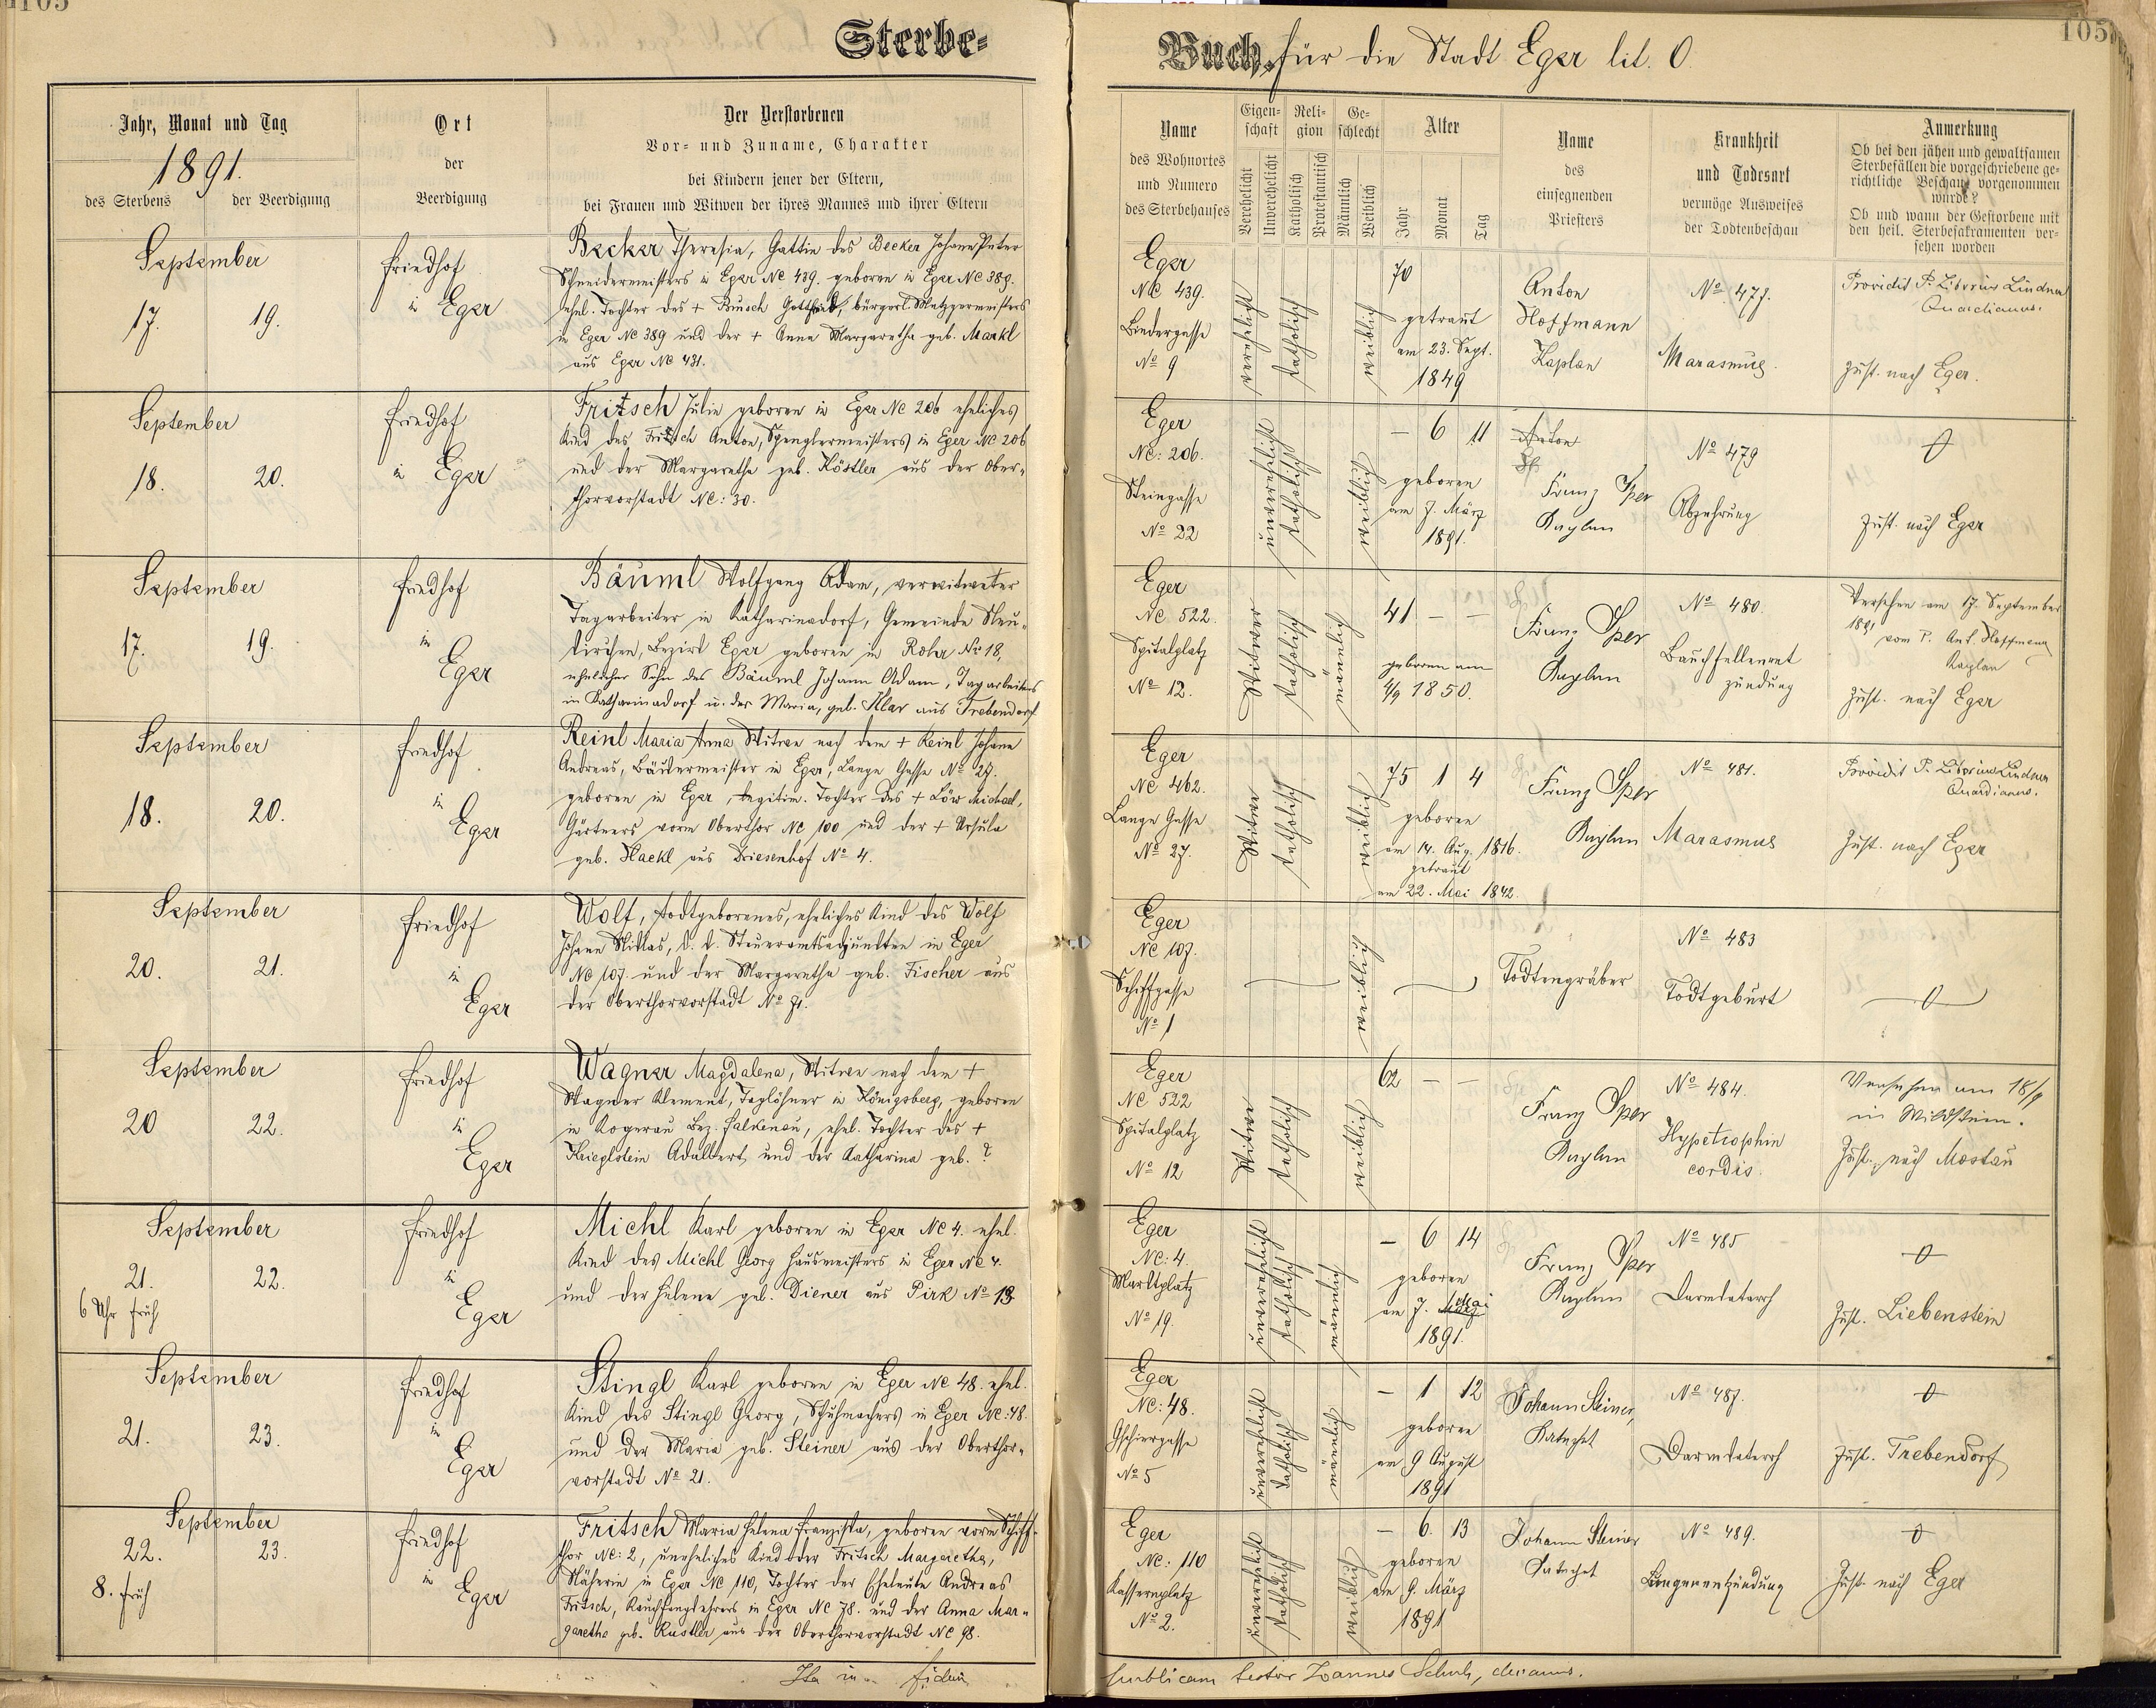 105
Sterbe-
Jahr, Monat und Tag
1891.
des Sterbens
der Beerdigung
Ort
der
Beerdigung
Der Verstorbenen
Vor- und Zuname, Charakter
bei Kindern jener der Eltern,
bei Frauen und Witwen der ihres Mannes und ihrer Eltern
September
17. 19.
Friedhof
in Eger
Becker Theresia, Gattin des Becker Johann Peter
Schneidermeisters in Eger NC 439. geboren in Eger NC 389.
ehel. Tochter des + Brusch Gottlieb, bürgerl. Metzgermeisters
in Eger NC 389 und der + Anna Margaretha geb. Markl
aus Eger NC 431.
September
18. 20.
Friedhof
in Eger
Fritsch Julie geboren in Eger NC 206 eheliches
Kind des Fritsch Anton, Spenglermeisters in Eger NC 206
und der Margaretha geb. Köstler aus der Ober-
thorvorstadt NC: 30.
September
17. 19.
Friedhof
in
Eger
Bäuml Wolfgang Adam, verwitweter
Tagarbeiter in Katharinadorf, Gemeinde Neu-
kirchen, Bezirk Eger geboren in Rohr No 18,
ehelicher Sohn des Bäuml Johann Adam, Tagarbeiters
in Katharinadorf u. der Maria, geb. Klar aus Trebendorf
September
18. 20.
Friedhof
in
Eger
Reinl Maria Anna Witwe nach dem + Reinl Johann
Andreas, Bäckermeister in Eger, Lange Gasse No 27.
geboren in Eger, legitim. Tochter des + Löw Michael,
Gärtners vorm Oberthor NC 100 und der + Ursula
geb. Hackl aus Driesenhof No 4.
September
20. 21.
Friedhof
in
Eger
Wolf, todtgeborenes, eheliches Kind des Wolf
Johann Niklas, k. k. Steueramtsadjunkten in Eger
NC 107. und der Margaretha geb. Fischer aus
der Oberthorvorstadt No 71.
September
20 22.
Friedhof
in
Eger
Wagner Magdalena, Witwe nach dem +
Wagner Klement, Taglöhner in Königsberg, geboren
in Kogerau Bez. Falkenau, ehel. Tochter des +
Krieglstein Adalbert und der Katharina geb. ?
September
21. 22.
6 Uhr früh
Friedhof
in
Eger
Michl Karl geboren in Eger NC 4. ehel.
Kind des Michl Georg Hausmeisters in Eger NC 4.
und der Helene geb. Diener aus Pirk No 13
September
21. 23.
Friedhof
in
Eger
Stingl Karl geboren in Eger NC 48. ehel.
Kind des Stingl Georg, Schuhmachers in Eger NC: 48.
und der Maria geb. Steiner aus der Oberthor-
vorstadt No 21.
September
22. 23.
8. früh
Friedhof
in
Eger
Fritsch Maria Helena Franziska, geboren vorm Schiff-
thor NC: 2, uneheliches Kind der Fritsch Margaretha,
Näherin in Eger NC 110, Tochter der Eheleute Andreas
Fritsch, Rauchfangkehrers in Eger NC 78. und der Anna Mar-
garetha geb. Rustler aus der Oberthorvorstadt NC 98.
Ita in fidem
105
Buch für die Stadt Eger lit. O.
Name
des Wohnortes
und Numero
des Sterbehauses
Eigen-
schaft
Verehelicht
Unverehelicht
Reli-
gion
Katholisch
Protestantisch
Ge-
schlecht
Männlich
Weiblich
Alter
Jahr
Monat
Tag
Name
des
einsegnenden
Priesters
Krankheit
und Todesart
vermöge Ausweises
der Todtenbeschau
Anmerkung
Ob bei den jähen und gewaltsamen
Sterbefällen die vorgeschriebene ge-
richtliche Beschau vorgenommen
wurde?
Ob und wann der Gestorbene mit
den heil. Sterbesakramenten ver-
sehen worden
Eger
NC 439.
Bindergasse
No 9
verehelicht
katholisch
weiblich
70
getraut
am 23. Sept.
1849
Anton
Hoffmann
Kaplan
No 477.
Marasmus.
Providit P. Liborius Lindner
Quardianus.
Zust. nach Eger.
Eger
NC: 206.
Steingasse
No 22
unverehelicht
katholisch
weiblich
— 6 11
geboren
am 7. März
1891.
Anton
Franz Iper
Kaplan
No 479
Abzehrung
Zust. nach Eger
Eger
NC 522.
Spitalplatz
No 12.
Witwer
katholisch
männlich
41 — —
geboren am
4/9 1850.
Franz Iper
Kaplan
No 480.
Bauchfellent
zündung
Versehen am 17. September
1891
vom P. Ant. Hoffmann
Kaplan
Zust. nach Eger
Eger
NC 462.
Lange Gasse
No 27.
Witwe
katholisch
weiblich
75 1 4
geboren
am 14. Aug. 1816.
getraut
am 22. Mai 1842.
Franz Iper
Kaplan
No 481.
Marasmus
Providit P. Liborius Lindner
Quardianus.
Zust. nach Eger
Eger
NC 107.
Schiffgasse
No 1
weiblich
Todtengräber
No 483
Todtgeburt
Eger
NC 522
Spitalplatz
No 12
Witwe
katholisch
weiblich
62 — —
Franz Iper
Kaplan
No 484.
Hypetrophia
cordis.
Versehen am 18/9
in Wildstein.
Zust. nach Mostau
Eger
NC: 4.
Marktplatz
No 19.
unverehelicht
katholisch
männlich
— 6 14
geboren
am 7. Mai
1891.
Franz Iper
Kaplan
No 485
Darmkatarrh
Zust. Liebenstein
Eger
NC: 48.
Gschiergasse
No 5
unverehelicht
katholisch
männlich
— 1 12
geboren
am 9 August
1891
Johann Steiner,
Katechet
No 487.
Darmkatarrh
Zust. Trebendorf
Eger
NC: 110
Kassernplatz
No 2.
unverehelicht
katholisch
weiblich
— 6. 13
geboren
am 9. März
1891
Johann Steiner
Katechet
No 489.
Lungenentzündung
Zust. nach Eger
publicam testor Joannes Schuh, decanus.